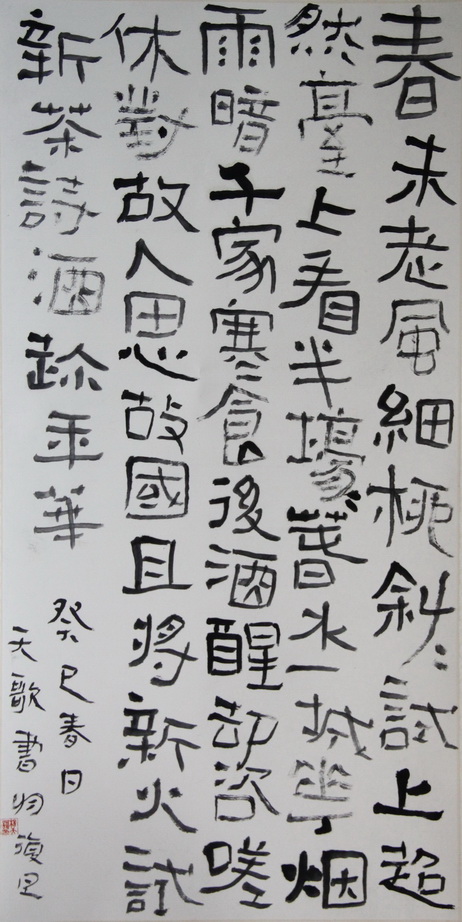 春未老風細柳斜〻試上超
然臺上看半壕萅水一城華烟
雨暗千家寒食後酒醒却咨嗟
休對故人思故國且將新火試
新茶詩酒趂年華
癸巳春日
天歌書於復旦